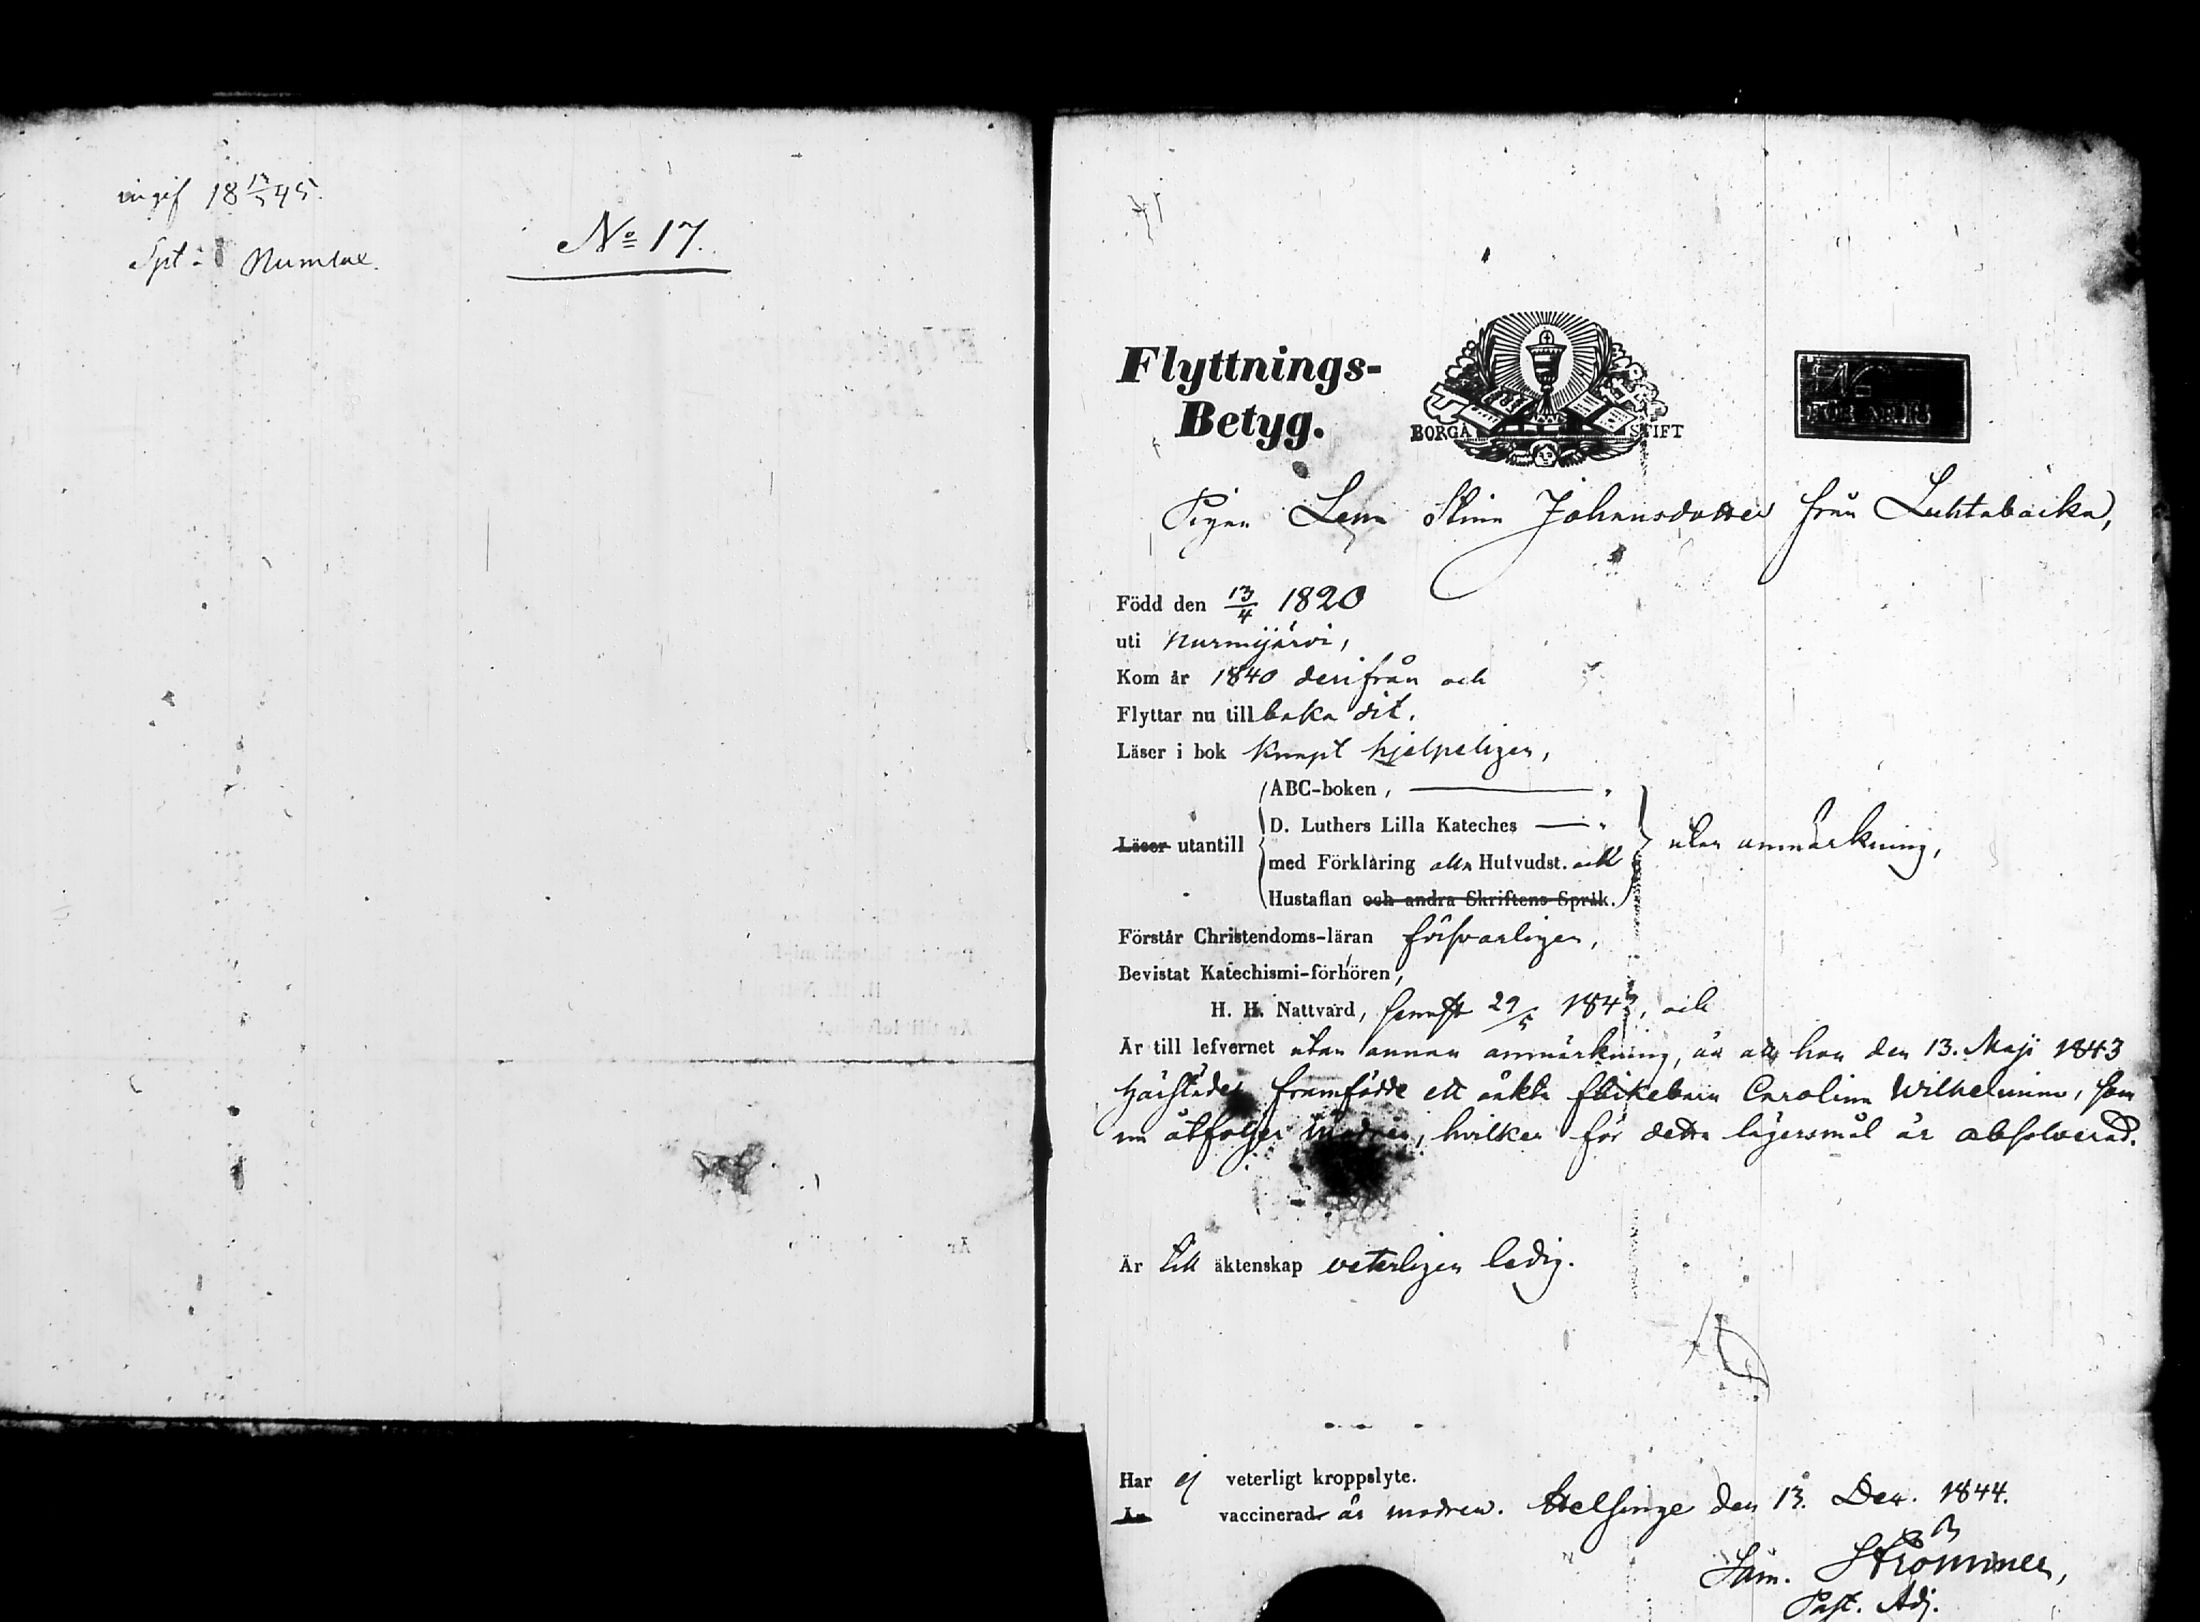 ingif 18 13/5 45.
Spt: Numlax.
No 17.
Flyttnings-
Betyg.
BORGÅ STIFT
Pigan Lena Stina Johansdotter från Luhtabacka,
Född den 13/4 1820
uti Nurmijärvi,
Kom år 1840 derifrån och
Flyttar nu till baka dit.
Läser i bok knapt hjelpeligen,
ABC-boken,
D. Luthers Lilla Kateches
Läser utantill
utan anmärkning,
med Förklaring alla Hufvudst. och
Hustaflan och andra Skriftens Språk.
Förstår Christendoms-läran försvarligen,
Bevistat Katechismi-förhören,
H. H. Nattvard, senast 29/5 1843, och
Är till lefvernet utan annan anmärkning, än att hon den 13. Maji 1843
härstädes framfödde ett oäkta flickebarn Carolina Wilhelmina, som
nu åtföljer modren, hvilken för detta lägersmål är absolverad.
Är till äktenskap veterligen ledig.
Har ej veterligt kroppslyte.
Är vaccinerad är modren. Helsinge den 13. Dec. 1844.
Sam. Strömmer,
Past. Adj.